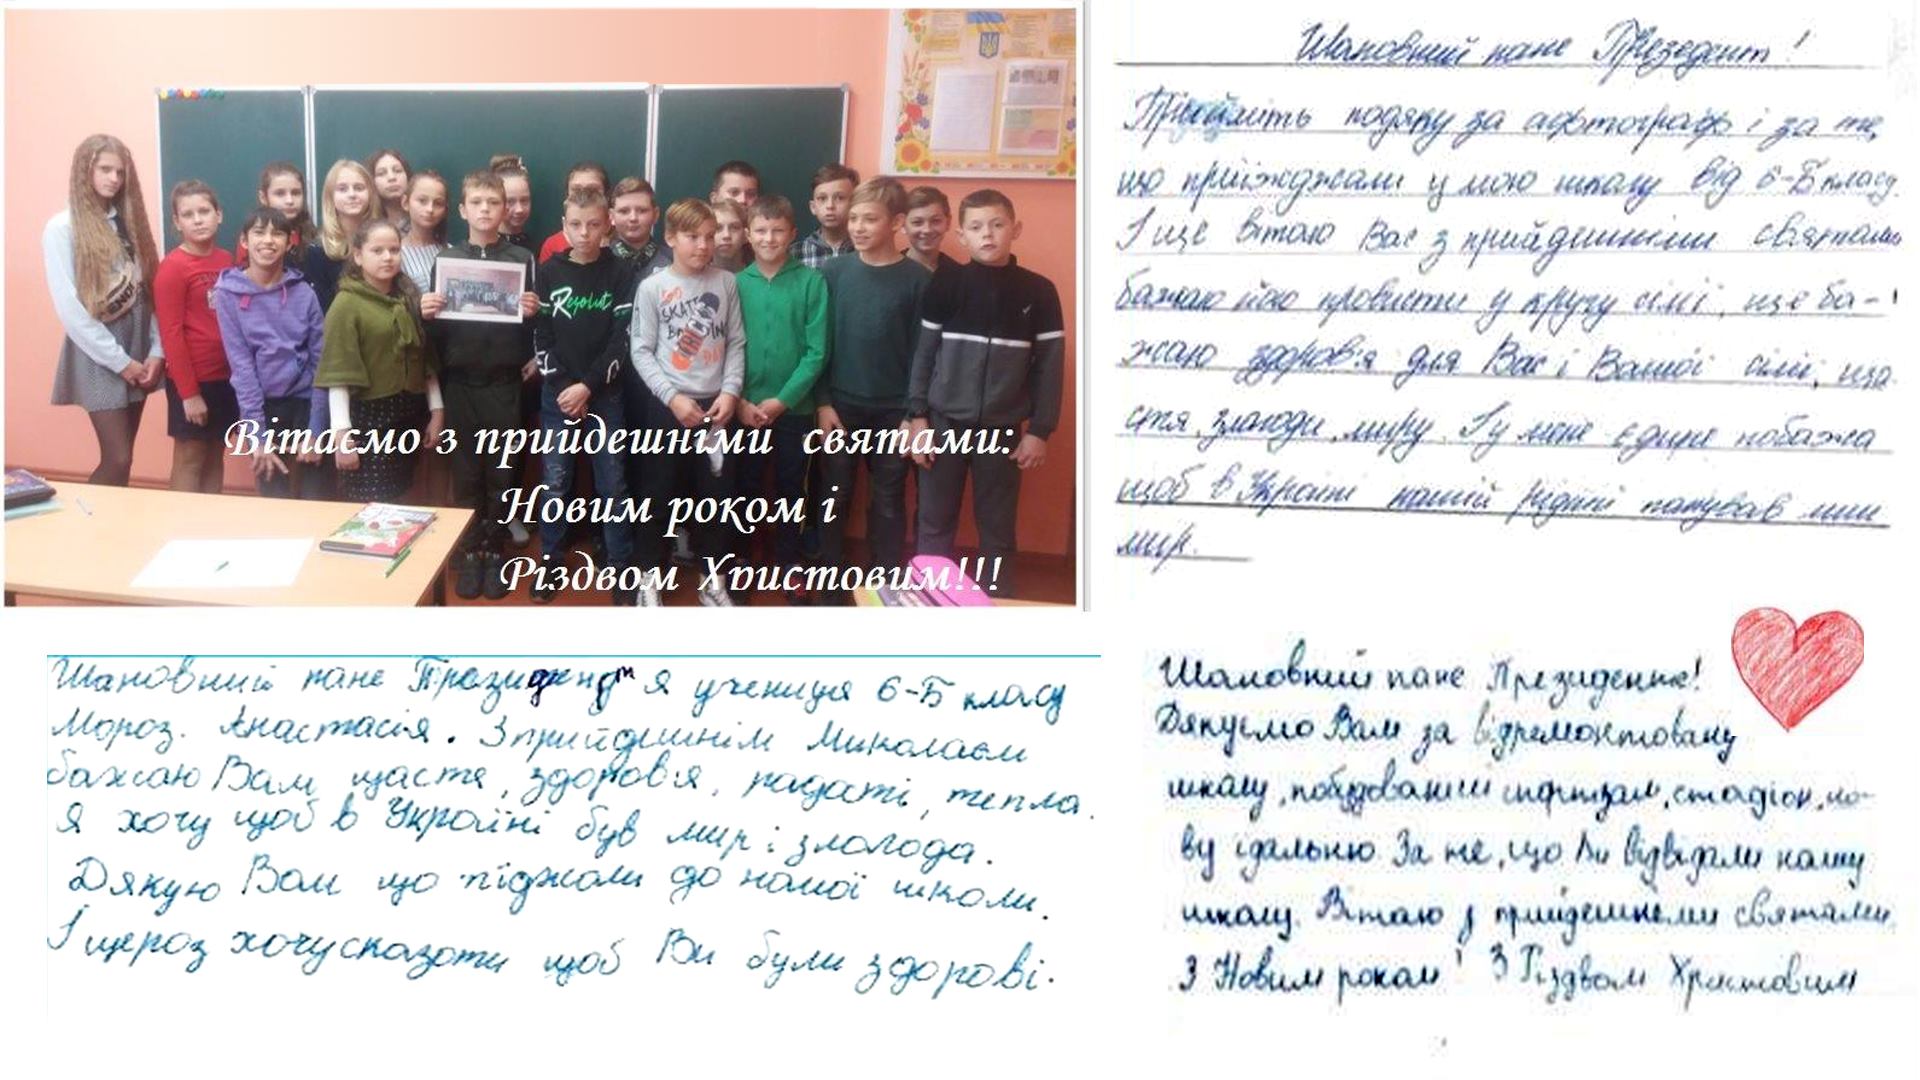 Вітаємо з прийдешніми святами:
Новим роком і
Різдвом Христовим!!!
Шановний пане Президент!
Прийміть подяку за афтограф і за те,
що приїжджали у мою школу від 6-Б класу.
І ще вітаю Вас з прийдешніми святами
бажаю його провисти у кругу сімї, ще ба-
жаю здоров'я для Вас і Вашої сімї, ща-
стя, злагоди, миру. І у мене єдине побажа
щоб в Україні нашій рідній панував
мир.
Шановний пане я учениця 6-Б класу
Мороз. Анастасія. З прийдешнім Миколаєм
бажаю Вам щастя, здоров'я, радості, тепла.
Я хочу щоб в Україні був мир і злагода.
Дякую Вам що піджали до нашої школи.
І щераз хочу сказати щоб Ви були здорові.
Шановний пане Президенте!
Дякуємо Вам за відремонтовану
школу, побудований спортзал, стадіон, но-
ву їдальню. За те, що Ви відвідали нашу
школу. Вітаю з прийдешніми святами.
З Новим роком! З Різдвом Христовим